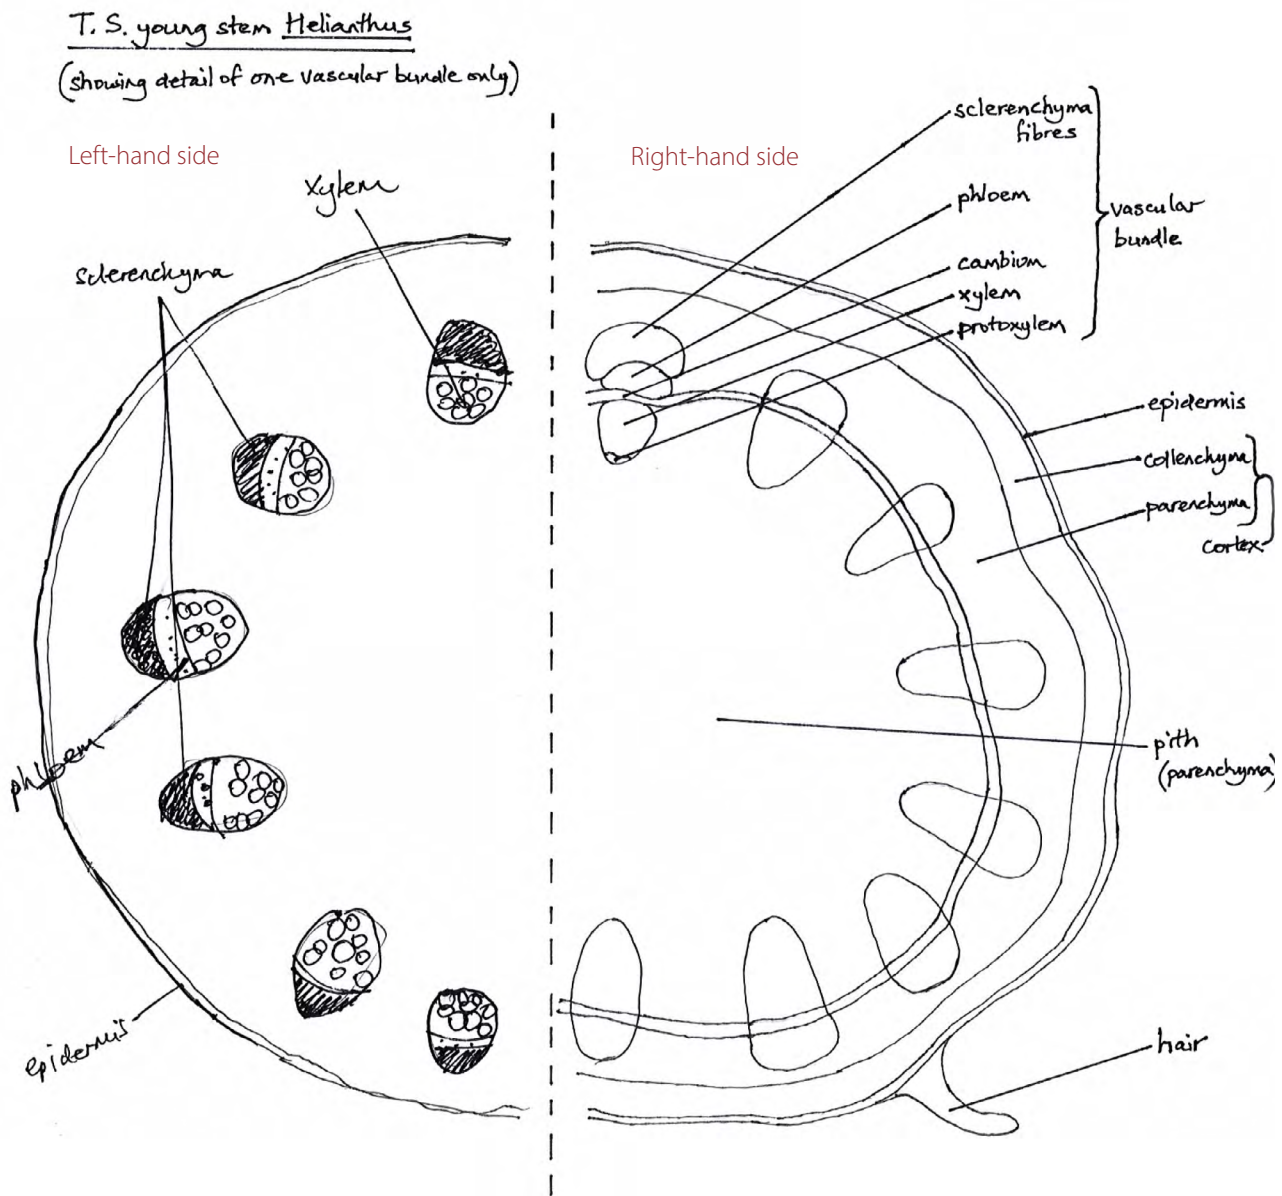 T. S. young stem Helianthus
(showing detail of one vascular bundle only)
Left-hand side
Right-hand side
xylem
sclerenchyma
phloem
epidermis
sclerenchyma
fibres
phloem
cambium
xylem
protoxylem
vascular
bundle
epidermis
collenchyma
parenchyma
cortex
pith
(parenchyma)
hair